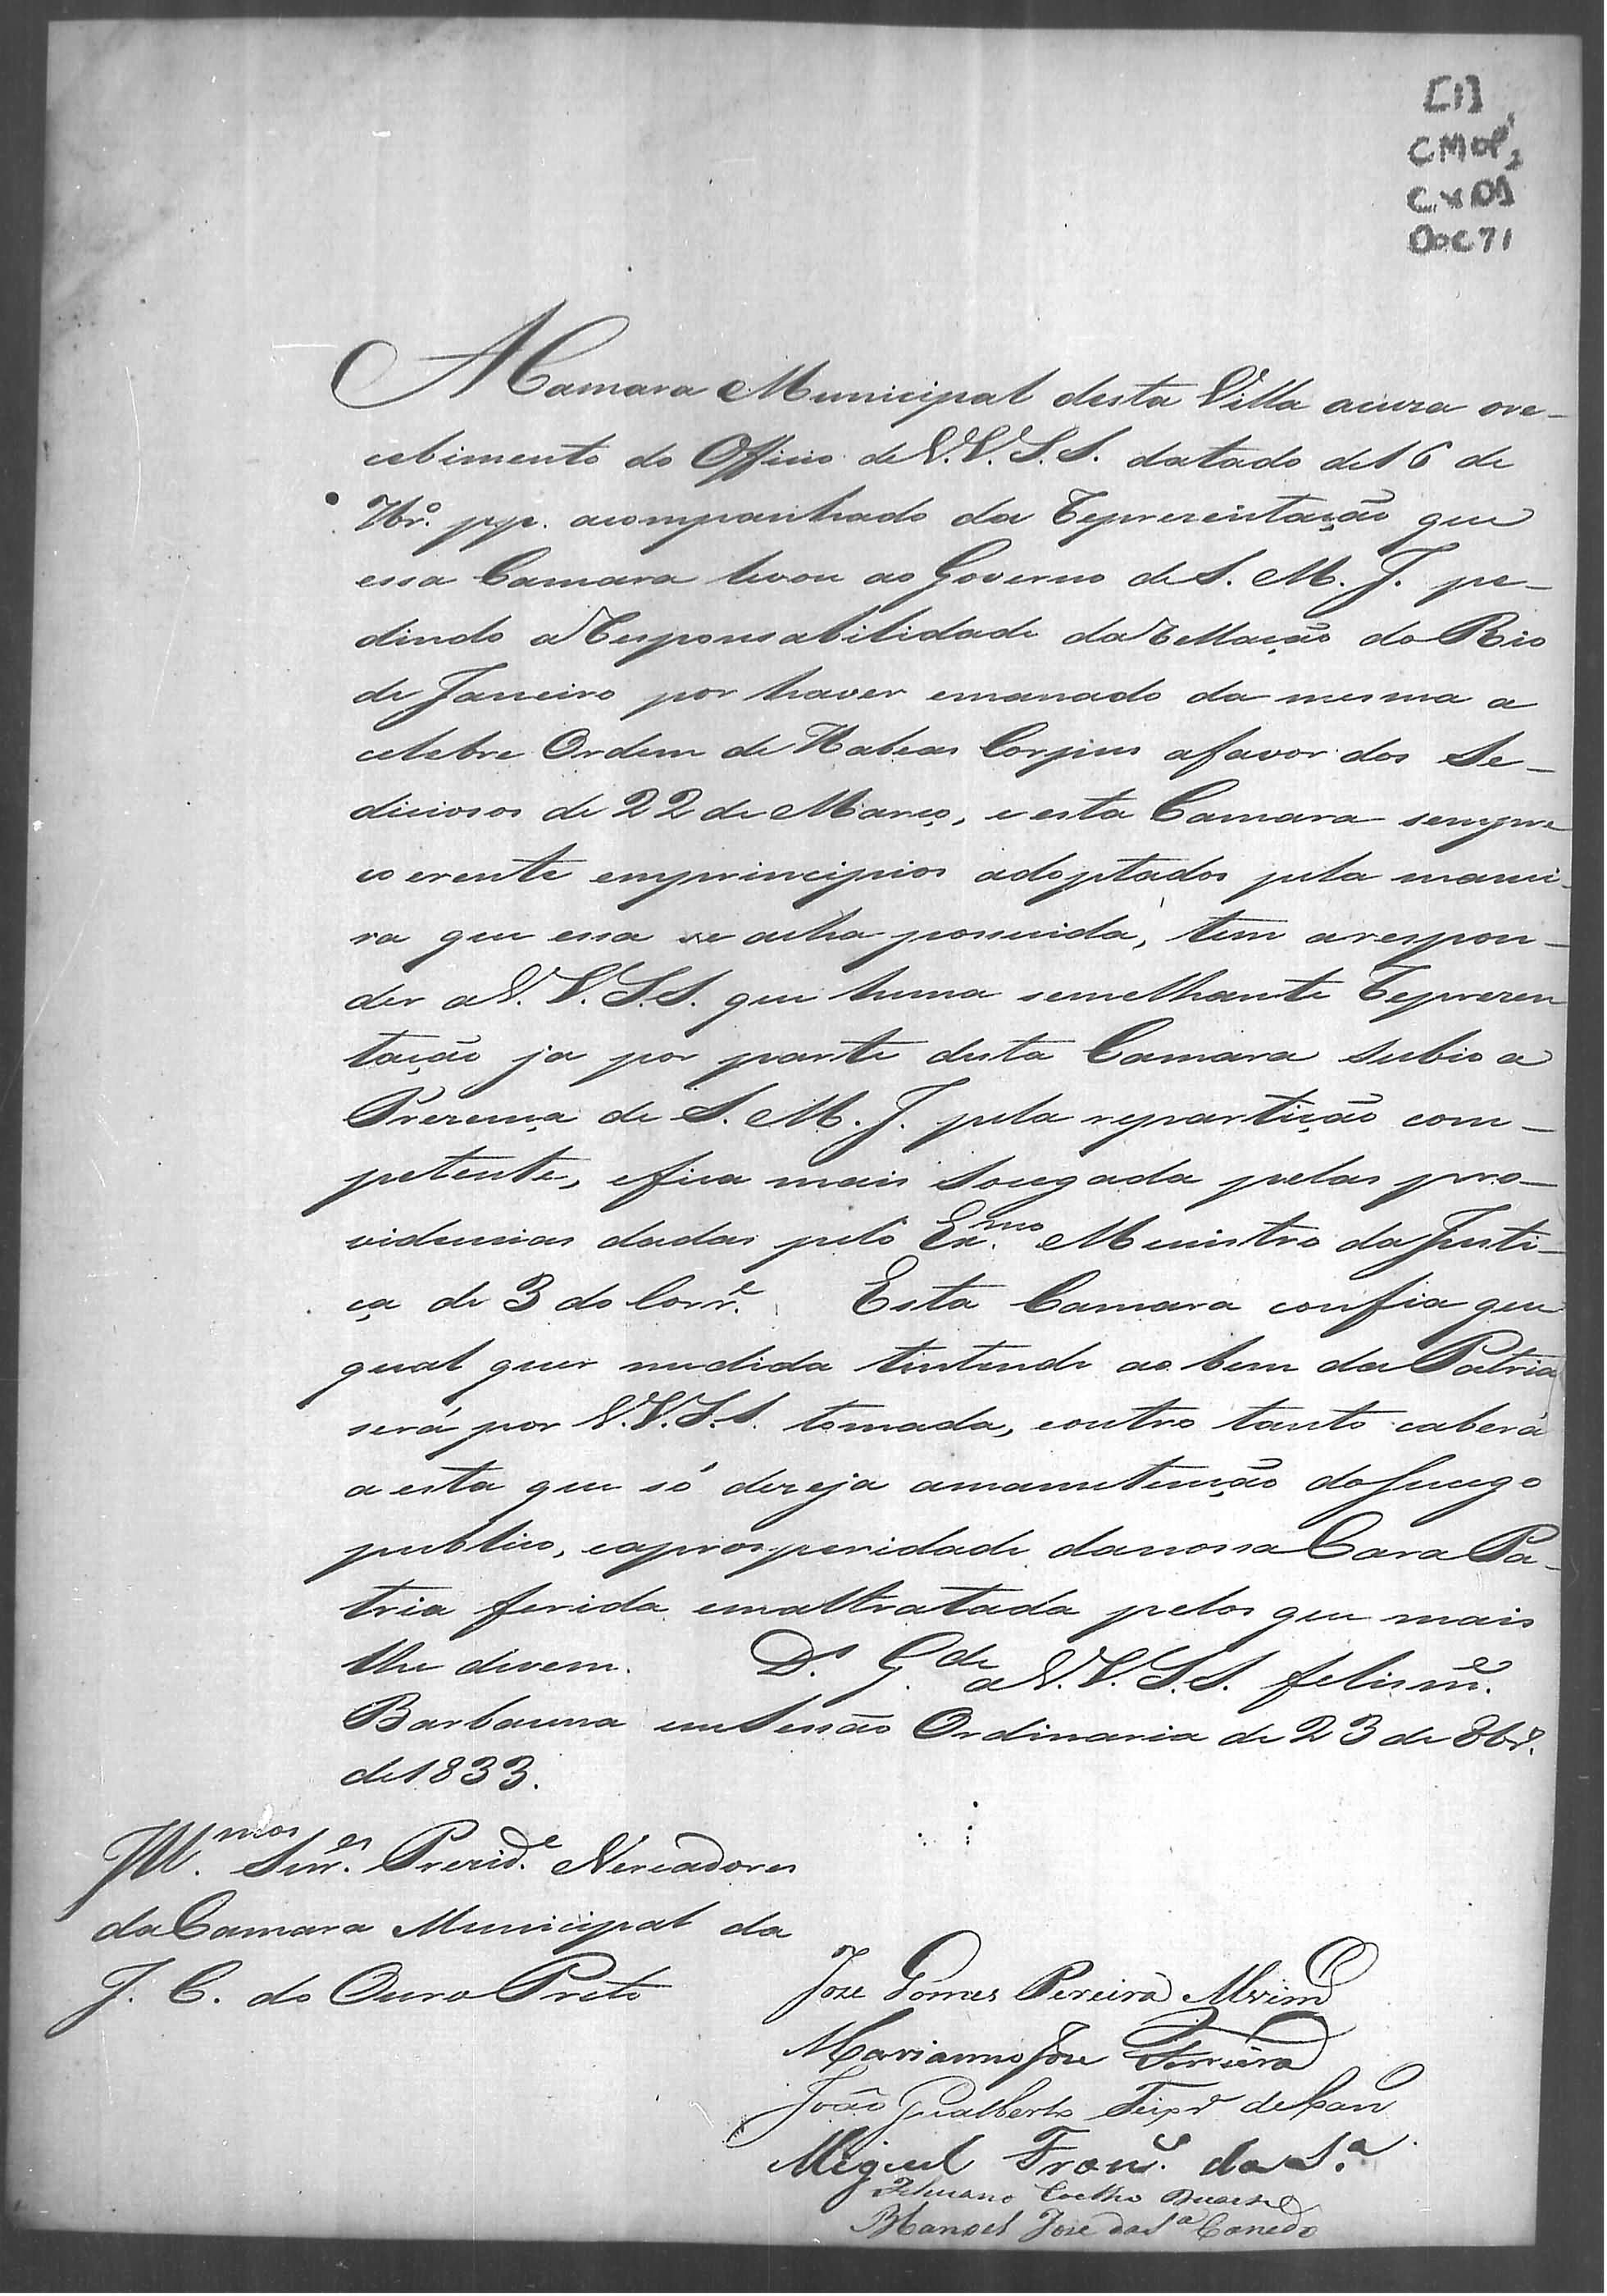 [1]
CMOP
Cx 01
Doc 71
A Camara Municipal desta Villa acuza o re-
cebimento do Officio de V.V.S.S. datado de 16 de
7br.º pp. acompanhado da Reprezentação que
essa Camara levou ao Governo de S. M. I. pe-
dindo a Responsabilidade da Rellação do Rio
de Janeiro por haver emanado da mesma a
celebre Ordem de Habeas Corpus a favor dos Se-
diciosos de 22 de Março, e esta Camara sempre
coerente em principios adoptados pela manei-
ra que essa se acha possuida, tem a respon-
der a V. V. S.S. que huma semelhante Reprezen
tação ja por parte desta Camara subio a
Prezença de S. M. I. pela repartição com-
petente, e fica mais socegada pelas pro-
videncias dadas pelo Ex.mo Ministro da Justi-
ça de 3 do Corr.e Esta Camara confia que
qual quer medida tentende ao bem da Patria
será por V.V.S.S. tomada, e outro tanto caberá
a esta que só dezeja a manutenção do Sucego
publico, e a prosperidade da nossa Cara Pa-
tria ferida e maltratada pelos que mais
lhe devem. D.s G.de a V.V.S.S. felism.e
Barbacena em Sessão Ordinaria de 23 de 8br.º
de 1833.
Ill.mos Snr.es Prezid.e e Vereadores
da Camara Municipal da
I. C. do Ouro Preto
Joze Gomes Pereira Alvim
Marianno Joze Ferreira
João Gualberto Teix.ra de
Miguel Fran.co da S.ª
Feliciano Coelho Duarte
Manoel Joze da S.ª Canedo